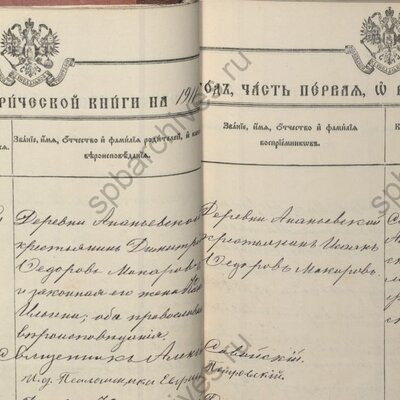 рической книги на 191
одъ, часть первая, ѡ
Званїе, имѧ, отчество и фамилїѧ родителей, и
вѣроисповѣданїѧ.
Званїе, имѧ, отчество и фамилїѧ
воспрїемниковъ.
Деревни Ананьевской
крестьянинъ Димитрій
Ѳедоровъ Макаровъ
и законная его жена
Ильина; оба православнаго
вѣроисповѣданія.
Священникъ
И.д. Псаломщика
Деревни Ананьевской
крестьянинъ
Ѳедоровъ Макаровъ.
Савайскій.
Петровскій.
spbarchives.ru